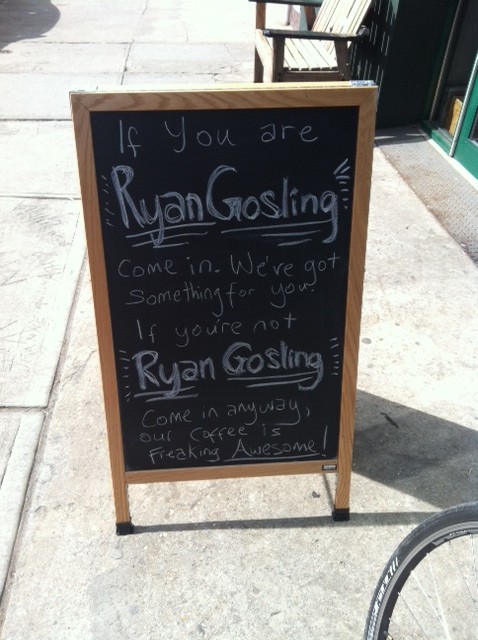 If You are
Ryan Gosling
Come in. We've got
Something for you.
If you're not
Ryan Gosling
Come in anyway,
our Coffee is
Freaking Awesome!